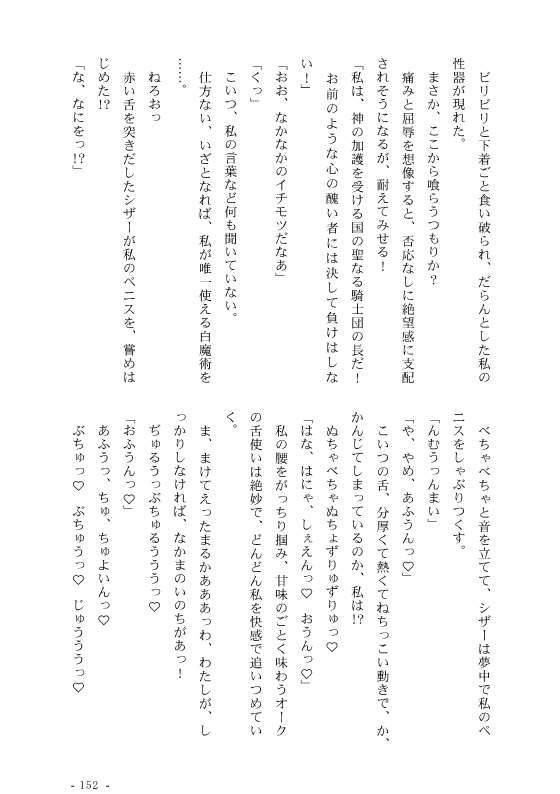 ビリビリと下着ごと食い破られ、だらんとした私の
性器が現れた。
　まさか、ここから喰らうつもりか？
　痛みと屈辱を想像すると、否応なしに絶望感に支配
されそうになるが、耐えてみせる！
「私は、神の加護を受ける国の聖なる騎士団の長だ！
　お前のような心の醜い者には決して負けはしな
い！」
「おお、なかなかのイチモツだなあ」
「くっ」
　こいつ、私の言葉など何も聞いていない。
　仕方ない、いざとなれば、私が唯一使える白魔術を
……。
　ねろおっ
　赤い舌を突きだしたシザーが私のペニスを、嘗めは
じめた!?
「な、なにをっ!?」
　べちゃべちゃと音を立てて、シザーは夢中で私のペ
ニスをしゃぶりつくす。
「んむうっんまい」
「や、やめ、あふうんっ♡」
　こいつの舌、分厚くて熱くてねちっこい動きで、か、
かんじてしまっているのか、私は!?
　ぬちゃべちゃぬちょずりゅずりゅっ♡
「はな、はにゃ、しぇえんっ♡　おうんっ♡」
　私の腰をがっちり掴み、甘味のごとく味わうオーク
の舌使いは絶妙で、どんどん私を快感で追いつめてい
く。
　ま、まけてえったまるかあああっわ、わたしが、し
っかりしなければ、なかまのいのちがあっ！
　ぢゅるうっぶちゅるうううっ♡
「おふうんっ♡」
　あふうっ、ちゅ、ちゅよいんっ♡
　ぶちゅっ♡　ぶちゅうっ♡　じゅうううっ♡
- 152 -